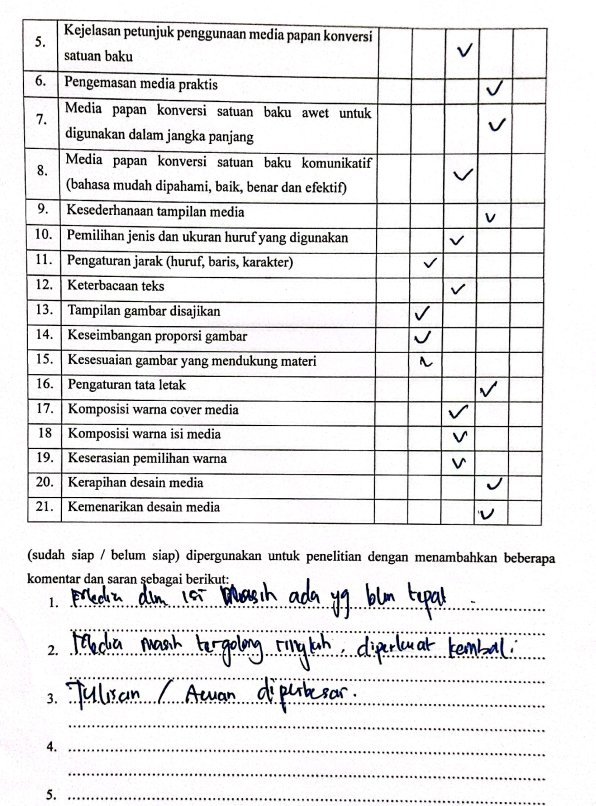 5. Kejelasan petunjuk penggunaan media papan konversi
satuan baku
6. Pengemasan media praktis
7. Media papan konversi satuan baku awet untuk
digunakan dalam jangka panjang
8. Media papan konversi satuan baku komunikatif
(bahasa mudah dipahami, baik, benar dan efektif)
9. Kesederhanaan tampilan media
10. Pemilihan jenis dan ukuran huruf yang digunakan
11. Pengaturan jarak (huruf, baris, karakter)
12. Keterbacaan teks
13. Tampilan gambar disajikan
14. Keseimbangan proporsi gambar
15. Kesesuaian gambar yang mendukung materi
16. Pengaturan tata letak
17. Komposisi warna cover media
18 Komposisi warna isi media
19. Keserasian pemilihan warna
20. Kerapihan desain media
21. Kemenarikan desain media
(sudah siap / belum siap) dipergunakan untuk penelitian dengan menambahkan beberapa
komentar dan saran sebagai berikut:
1. Media dan isi masih ada yg blm tepat.
2. Media masih tergolong ringkih, diperkuat kembali
3. Tulisan / diperbesar.
4.
5.